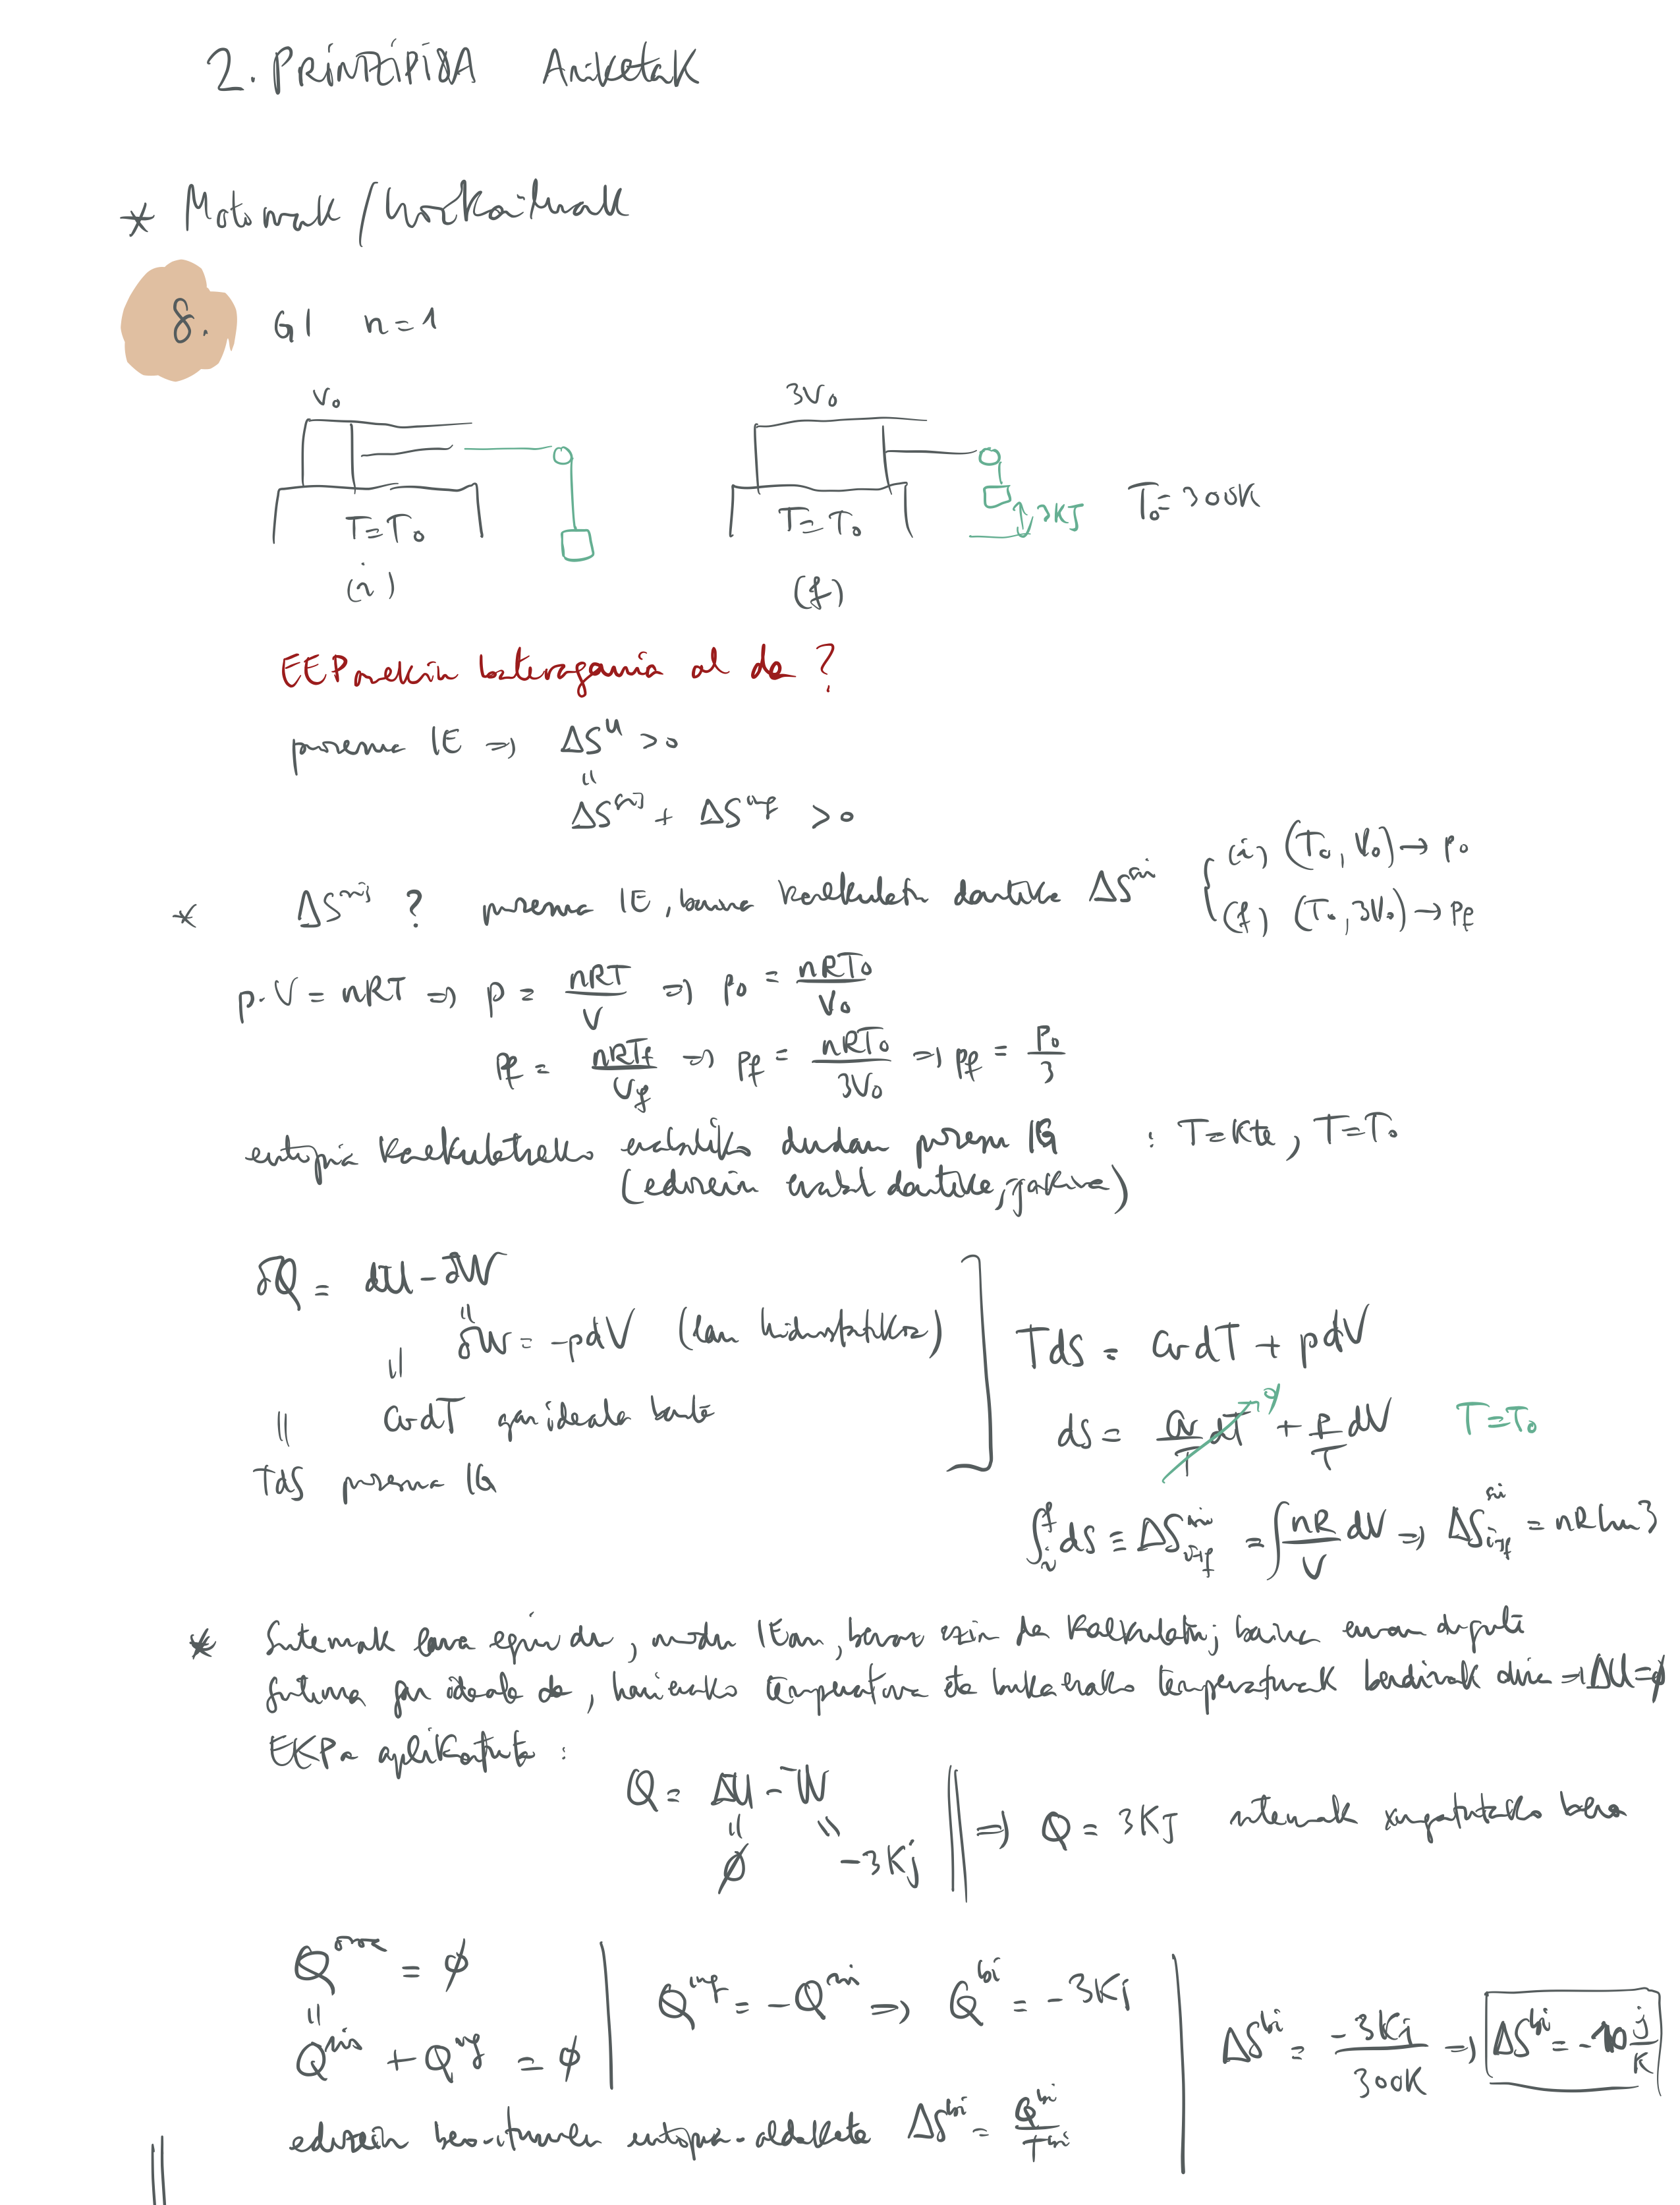 2. PRINTZIPIOA Ariketak
* Motorrak / hozkailuak
8. GI n=1
V₀ 3V₀
T=T₀ T=T₀ 3KJ T₀=300K
(i) (f)
EEParekin bateragarria al da ?
prozesua IE ⇒ ΔSᵘ >0
"
ΔSˢⁱˢ + ΔSⁱⁿᵍ >0
* ΔSˢⁱˢ ? prozesua IE, baina kalkulatu daiteke ΔSˢⁱ { (i) (T₀, V₀) → p₀
(f) (T₀, 3V₀) → pf
p·V = nRT ⇒ p = nRT/V ⇒ p₀ = nRT₀/V₀
pf = nRTf/Vf ⇒ pf = nRT₀/3V₀ ⇒ pf = p₀/3
entropia kalkulatzeko erabiliko dudan prozesu IG : T=Kte, T=T₀
(edozein erabil daiteke, )
δQ = dU - δW
" δW = -pdV (lan hidrostatikoa)
" CvdT gas ideala baita
" TdS prozesua IG
TdS = CvdT + pdV
dS = Cv/T dT + p/T dV T=T₀
∫ᵢᶠ dS ≡ ΔSˢⁱˢ i→f = ∫ nR/V dV ⇒ ΔSˢⁱ i→f = nR ln 3
* Sistemak lana egin du, modu IEan, beroa ezin da kalkulatu; baina esan digute
sistema gas ideala da, hasierako tenperatura eta bukaerako tenperaturak berdinak dira ⇒ ΔU=ϕ
EKPa aplikatuta :
Q = ΔU - W ⇒ Q = 3KJ sistemak xurgatutako beroa
" "
ϕ -3Kj
Qᵒʳᵒ = ϕ
"
Qˢⁱˢ + Qⁱⁿᵍ = ϕ
Qⁱⁿᵍ = -Qˢⁱˢ ⇒ Qᵇⁱ = -3Kj
ΔSᵇⁱ = -3Kj/300K ⇒ ΔSᵇⁱ = -10 j/K
edozein bero-iturriren entropia-aldaketa ΔSᵇⁱ = Qᵇⁱ/Tᵇⁱ